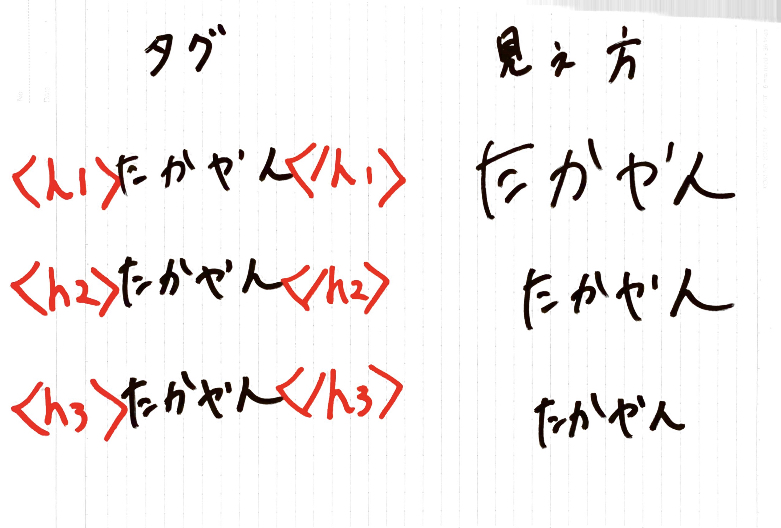 タグ 見え方
<h1>たかやん</h1> たかやん
<h2>たかやん</h2> たかやん
<h3>たかやん</h3> たかやん